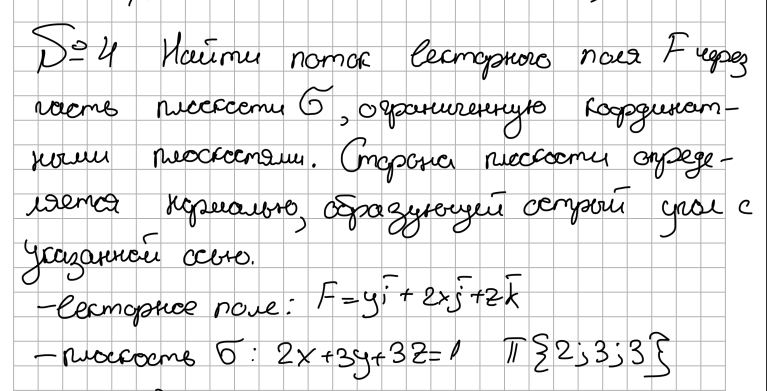 №4 Найти поток векторного поля F через
часть плоскости σ, ограниченную координат-
ными плоскостями. Сторона плоскости опреде-
ляется нормалью, образующей острый угол с
указанной осью.
-векторное поле: F=yi̅+2xj̅+zk̅
-плоскость σ: 2x+3y+3z=1 π{2;3;3}